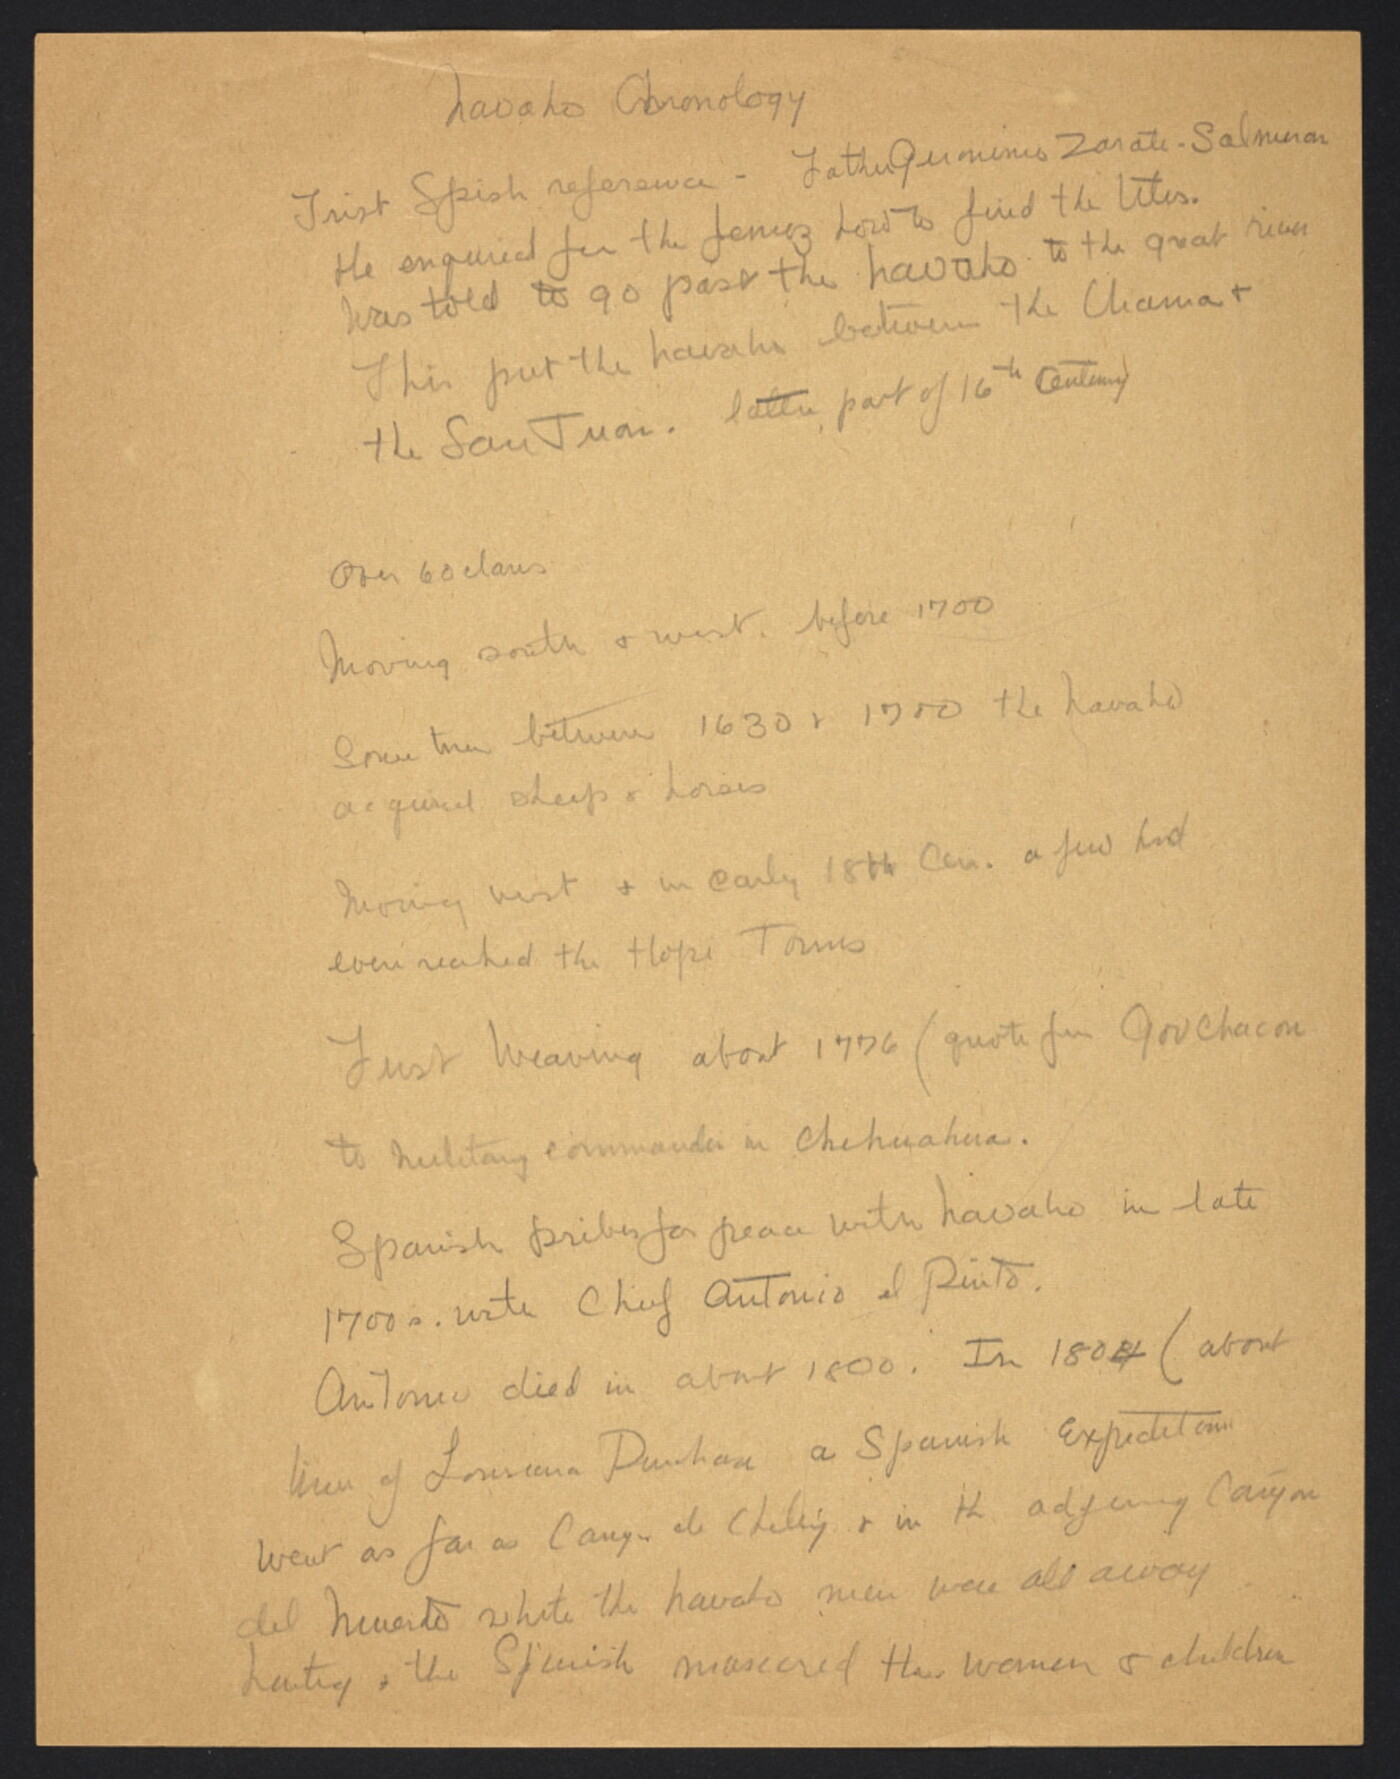 Navaho Chronology
First Spish reference - Father Geronimo Zarate-Salmeron
He enquired for the Jemez how to find the Utes.
Was told to go past the Navaho to the great river
This put the Navaho between the Chama &
the San Juan. latter part of 16th Century
Over 60 clans
Moving south & west. before 1700
Some time between 1630 & 1700 the Navaho
acquired sheep & horses
Moving west & in early 18th Cen. a few had
even reached the Hopi Towns
First Weaving about 1776 (quote fm Gov Chacon
to military commander in Chehuahua.
Spanish bribes for peace with Navaho in late
1700s. with Chief Antonio el Pinto.
Antonio died in about 1800. In 1804 (about
time of Louisiana Purchase a Spanish Expedition
went as far as Canyn de Chelly & in th adjoining Canyon
del Muerto while the Navaho men were all away
hunting, the Spanish mascered the women & children